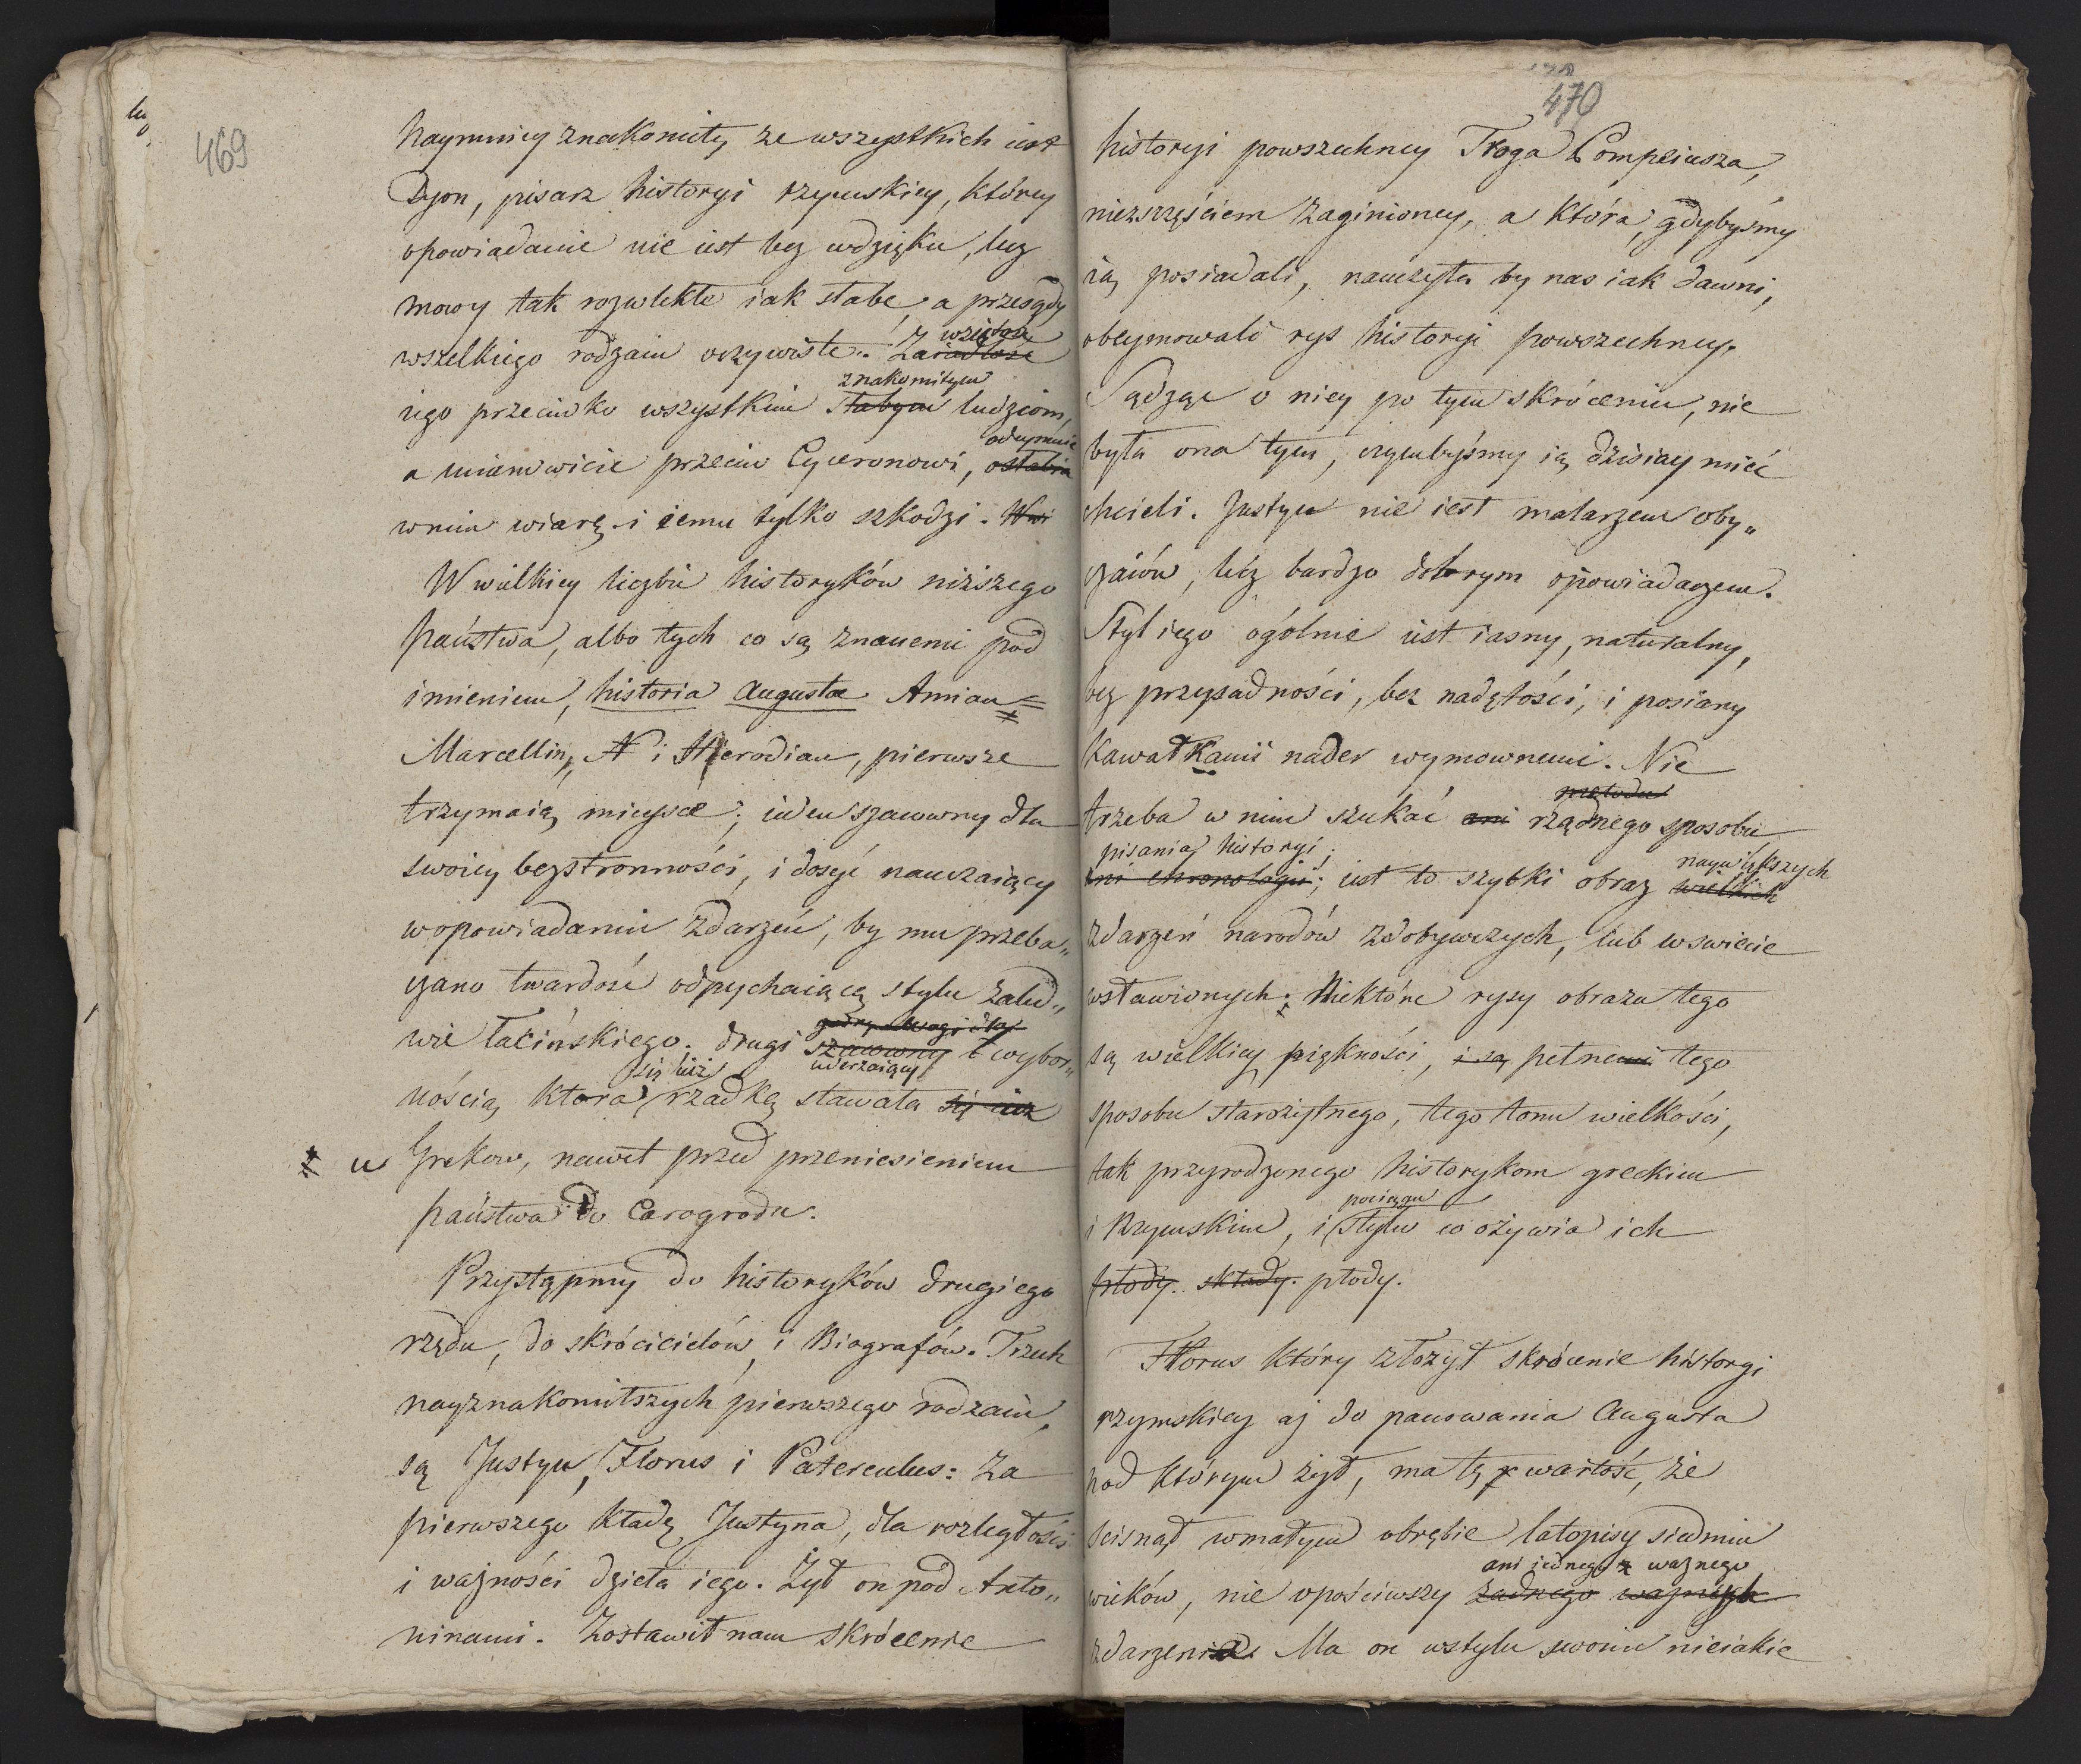 469
Naymniey znakomity ze wszystkich iest
Dyon, pisarz historyi rzymskiey, którey
opowiadanie nie iest bez wdzięku, lecz
mowy tak rozwlekłe iak słabe, a przesądy
wziętość
wszelkiego rodzaiu oczywiste. Zaiadłość
znakomitym
iego przeciwko wszystkim słabym ludziom,
odeymuie
a mianowicie przeciw Cyceronowi, osłabia
w nim wiarę i iemu tylko szkodzi. W
W wielkiey liczbie historyków niższego
państwa, albo tych co są znanemi pod
imieniem, historia Augustæ Amian=
Marcellin, i Herodian, pierwsze
trzymaią mieysce; ieden szanowny dla
swoiey bezstronności, i dosyć nauczaiący
w opowiadaniu zdarzeń, by mu przeba„
czano twardość odpychaiącą stylu zaled„
godny uwagi dla
wie łacińskiego. drugi szanowny z wybor„
się iuż uderzaiący
nością, która rzadką stawała się iuż
u Greków, nawet przed przeniesieniem
państwa do Carogrodu.
Przystąpmy do historyków drugiego
rzędu, do skrócicielów, i Biografów. Trzech
nayznakomitszych pierwszego rodzaiu,
są Justyn, Florus i Paterculus: Za
pierwszego kładę Justyna, dla rozległości
i ważności dzieła iego. Żył on pod Anto„
ninami. Zostawił nam skrócenie
470
historyi powszechney Troga Pompeiusza,
niezszczęściem zaginioney, a która, gdybyśmy
ią posiadali, nauczyła by nas iak dawni,
obeymowali rys historyi powszechney.
Sądząc o niey po tym skróceniu, nie
była ona tym, czymbyśmy ią dzisiay mieć
chcieli. Justyn nie iest malarzem oby„
czaiów, lecz bardzo dobrym opowiadaczem.
Styl iego ogólnie iest iasny, naturalny,
bez przysadności, bez nadętości, i posiany
kawałkami nader wymownemi. Nie
metodu
trzeba w nim szukać ani rządnego sposobu
pisania historyi; naywiększych
ani chronologii; iest to szybki obraz wielkich
zdarzeń narodów zdobywczych, lub w swiecie
wsławionych. Niektóre rysy obrazu tego
są wielkiey piękności, i są pełnemi tego
sposobu starożytnego, tego tonu wielkości,
tak przyrodzonego historykom greckim
pociągu
i Rzymskim, i stylu co ożywia ich
płody. składy. płody.
Florus który złożył skrócenie historyi
rzymskiey aż do panowania Augusta
pod którym żył, ma tę wartość, że
ścisnął w małym obrębie latopisy siedmiu
ani iednego z ważnego
wieków, nie opościwszy żadnego ważnych
zdarzenia. Ma on w stylu swoim nieiakie